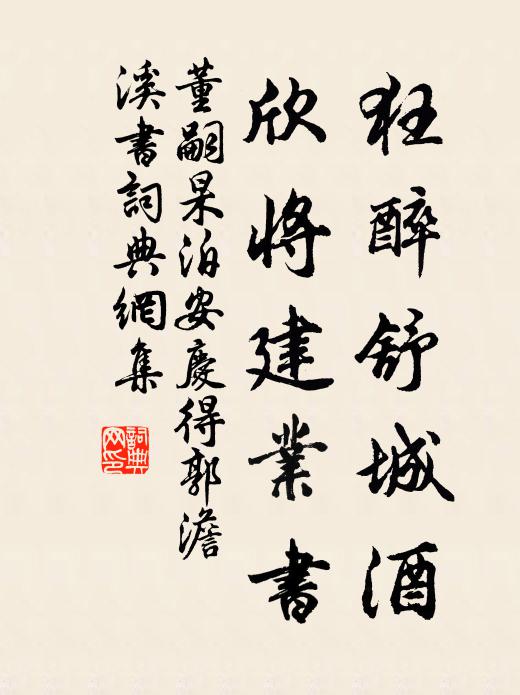 狂醉舒城酒
欣將建業書
董嗣杲泊安慶得郭澹
溪書詞典網集
詞典
网印